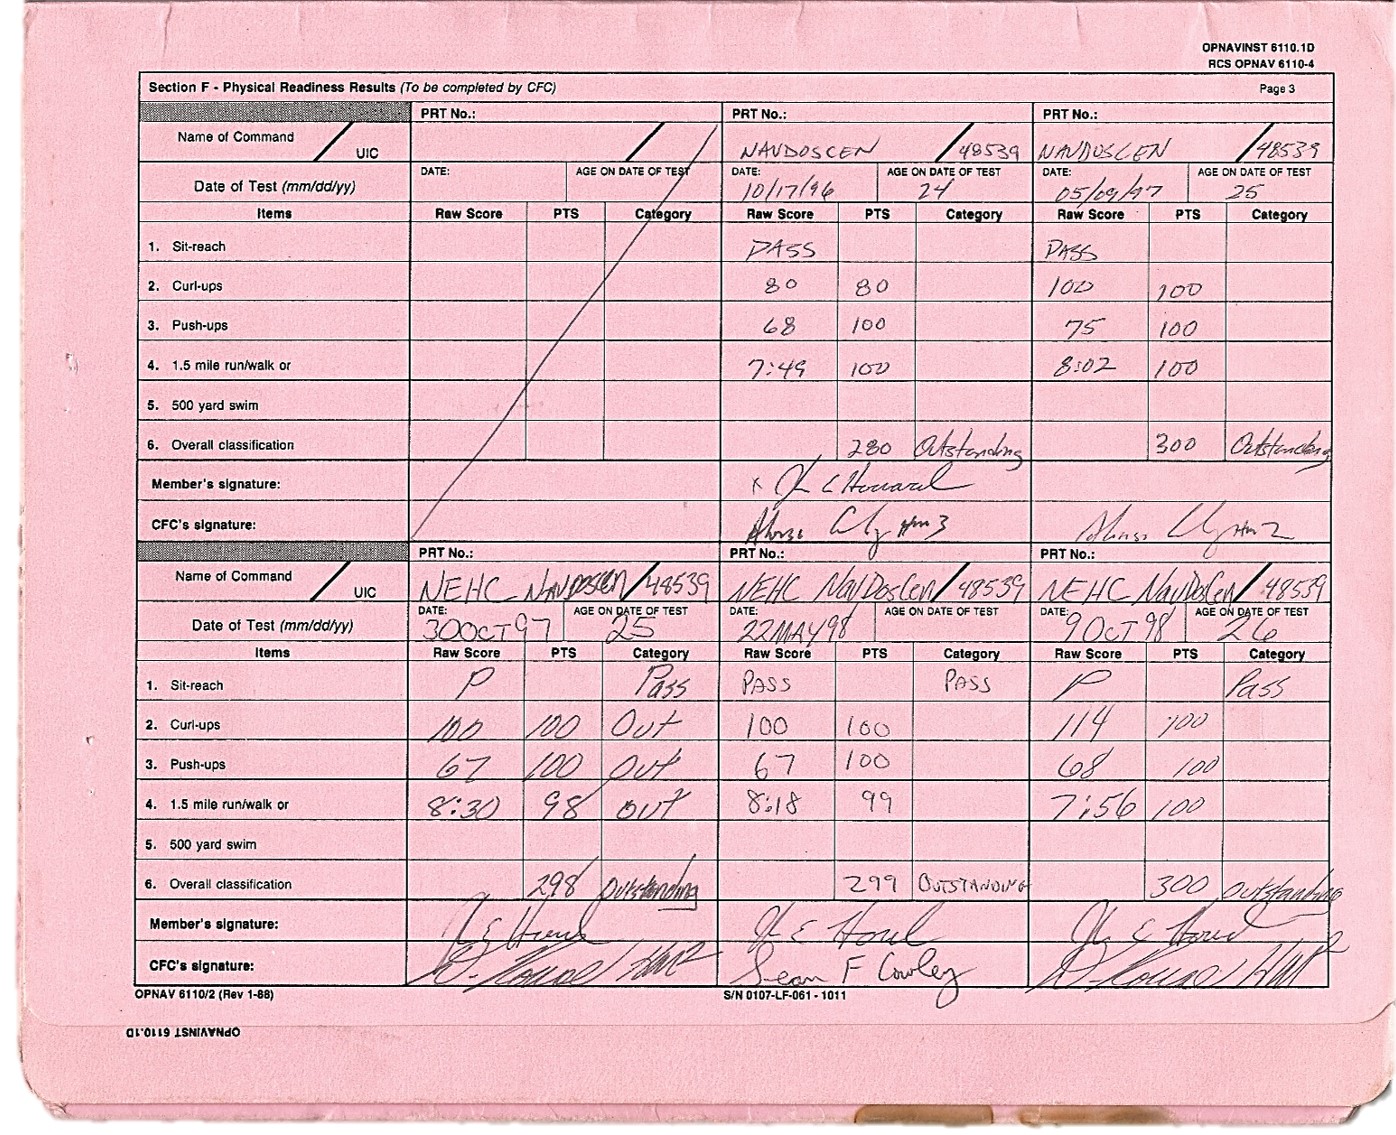 OPNAVINST 6110.1D
RCS OPNAV 6110-4
Section F - Physical Readiness Results (To be completed by CFC) Page 3
PRT No.: PRT No.: PRT No.:
Name of Command / UIC / NAVDOSCEN / 48539 NAVDOSCEN / 48539
Date of Test (mm/dd/yy) DATE: AGE ON DATE OF TEST DATE: 10/17/96 AGE ON DATE OF TEST 24 DATE: 05/09/97 AGE ON DATE OF TEST 25
Items Raw Score PTS Category Raw Score PTS Category Raw Score PTS Category
1. Sit-reach PASS PASS
2. Curl-ups 80 80 100 100
3. Push-ups 68 100 75 100
4. 1.5 mile run/walk or 7:49 100 8:02 100
5. 500 yard swim
6. Overall classification 280 Outstanding 300 Outstanding
Member's signature: x
CFC's signature: HM3 HM2
PRT No.: PRT No.: PRT No.:
Name of Command / UIC NEHC NAVDOSCEN / 48539 NEHC NavDosCen / 48539 NEHC NavDosCen / 48539
Date of Test (mm/dd/yy) DATE: 30OCT97 AGE ON DATE OF TEST 25 DATE: 22MAY98 AGE ON DATE OF TEST DATE: 9OCT98 AGE ON DATE OF TEST 26
Items Raw Score PTS Category Raw Score PTS Category Raw Score PTS Category
1. Sit-reach P Pass PASS PASS P Pass
2. Curl-ups 100 100 Out 100 100 114 100
3. Push-ups 67 100 Out 67 100 68 100
4. 1.5 mile run/walk or 8:30 98 out 8:18 99 7:56 100
5. 500 yard swim
6. Overall classification 298 Outstanding 299 OUTSTANDING 300 Outstanding
Member's signature:
CFC's signature: Sean F Cowley
OPNAV 6110/2 (Rev 1-88) S/N 0107-LF-061-1011
OPNAVINST 6110.1D